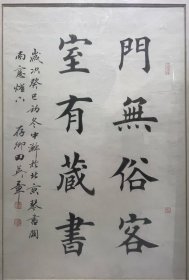 門無俗客
室有藏書
歲次癸巳初冬中澣於北京琴書閣
南窗燈下
田英章